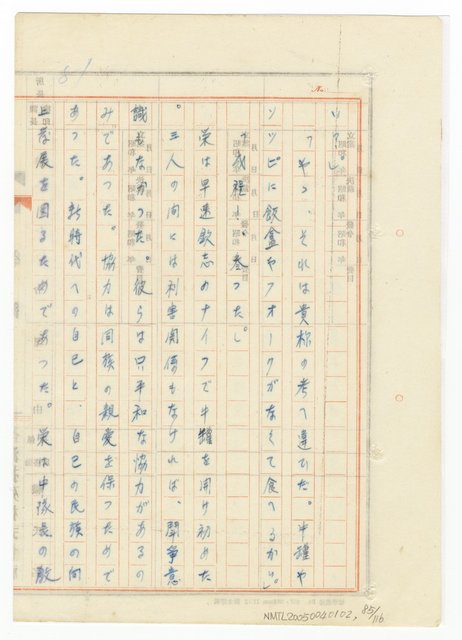 ひつ。」
「やつ、それは貴様の考へ違ひだ。牛罐や
ソツピに飯盒やフオークがなくて食へるかい。」
「成程、参つたし。
栄は早速敏志のナイフで牛罐を開け初めた
。三人の間には利害関係もなければ、闘争意
識もなかつた。彼らは只平和な協力があるの
みであつた。協力は同族の親愛を保つためで
あつた。新時代への自己と、自己の民族の向
上発展を図るためであつた。栄は中隊長の敵
81
No.
NMTL20050040102, 85/116